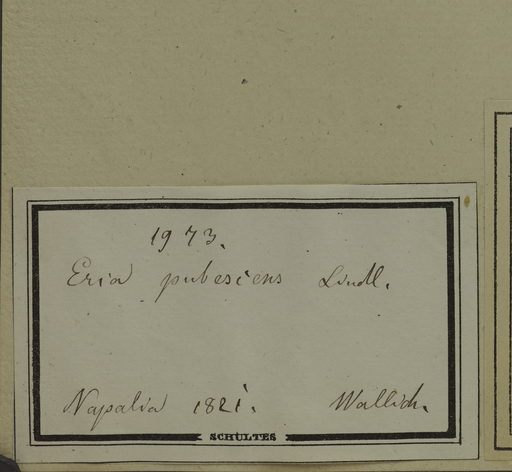 1973.
Eria pubescens Lindl.
Napalia 1821. Wallich.
SCHULTES